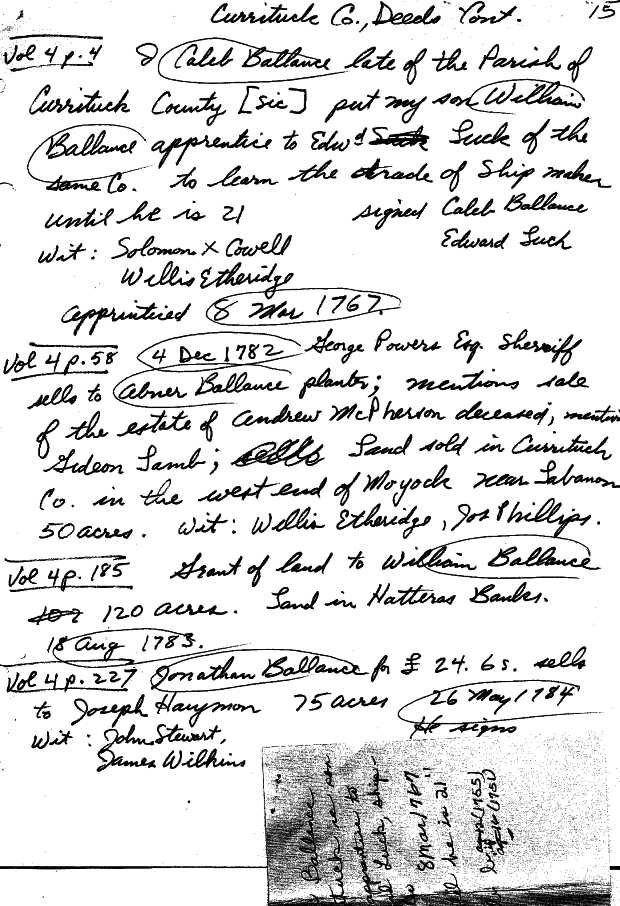 Currituck Co., Deeds Cont. 15
Vol 4 p. 4 I Caleb Ballance late of the Parish of
Currituck County [sic] put my son William
Ballance apprentice to Edwd Luck of the
same Co. to learn the trade of Ship maker
until he is 21 signed Caleb Ballance
Wit: Solomon X Cowell Edward Luck
Willis Etheridge
apprinticed 8 Mar 1767.
Vol 4 p. 58 4 Dec 1782 George Powers Esq. Sherriff
sells to Abner Ballance planter; mentions sale
of the estate of Andrew McPherson deceased, mention
Gideon Lamb; Land sold in Currituck
Co. in the west end of Moyock near Labanon
50 acres. Wit: Willis Etheridge, Jos Phillips.
Vol 4 p. 185 Grant of land to William Ballance
120 acres. Land in Hatteras Banks.
18 Aug 1783.
Vol 4 p. 227 Jonathan Ballance for £ 24. 6s. sells
to Joseph Haymon 75 acres 26 May 1784
Wit: John Stewart, He signs
James Wilkins
Ballance
apprentice to
Luck, ship
8 Mar 1767
he is 21"